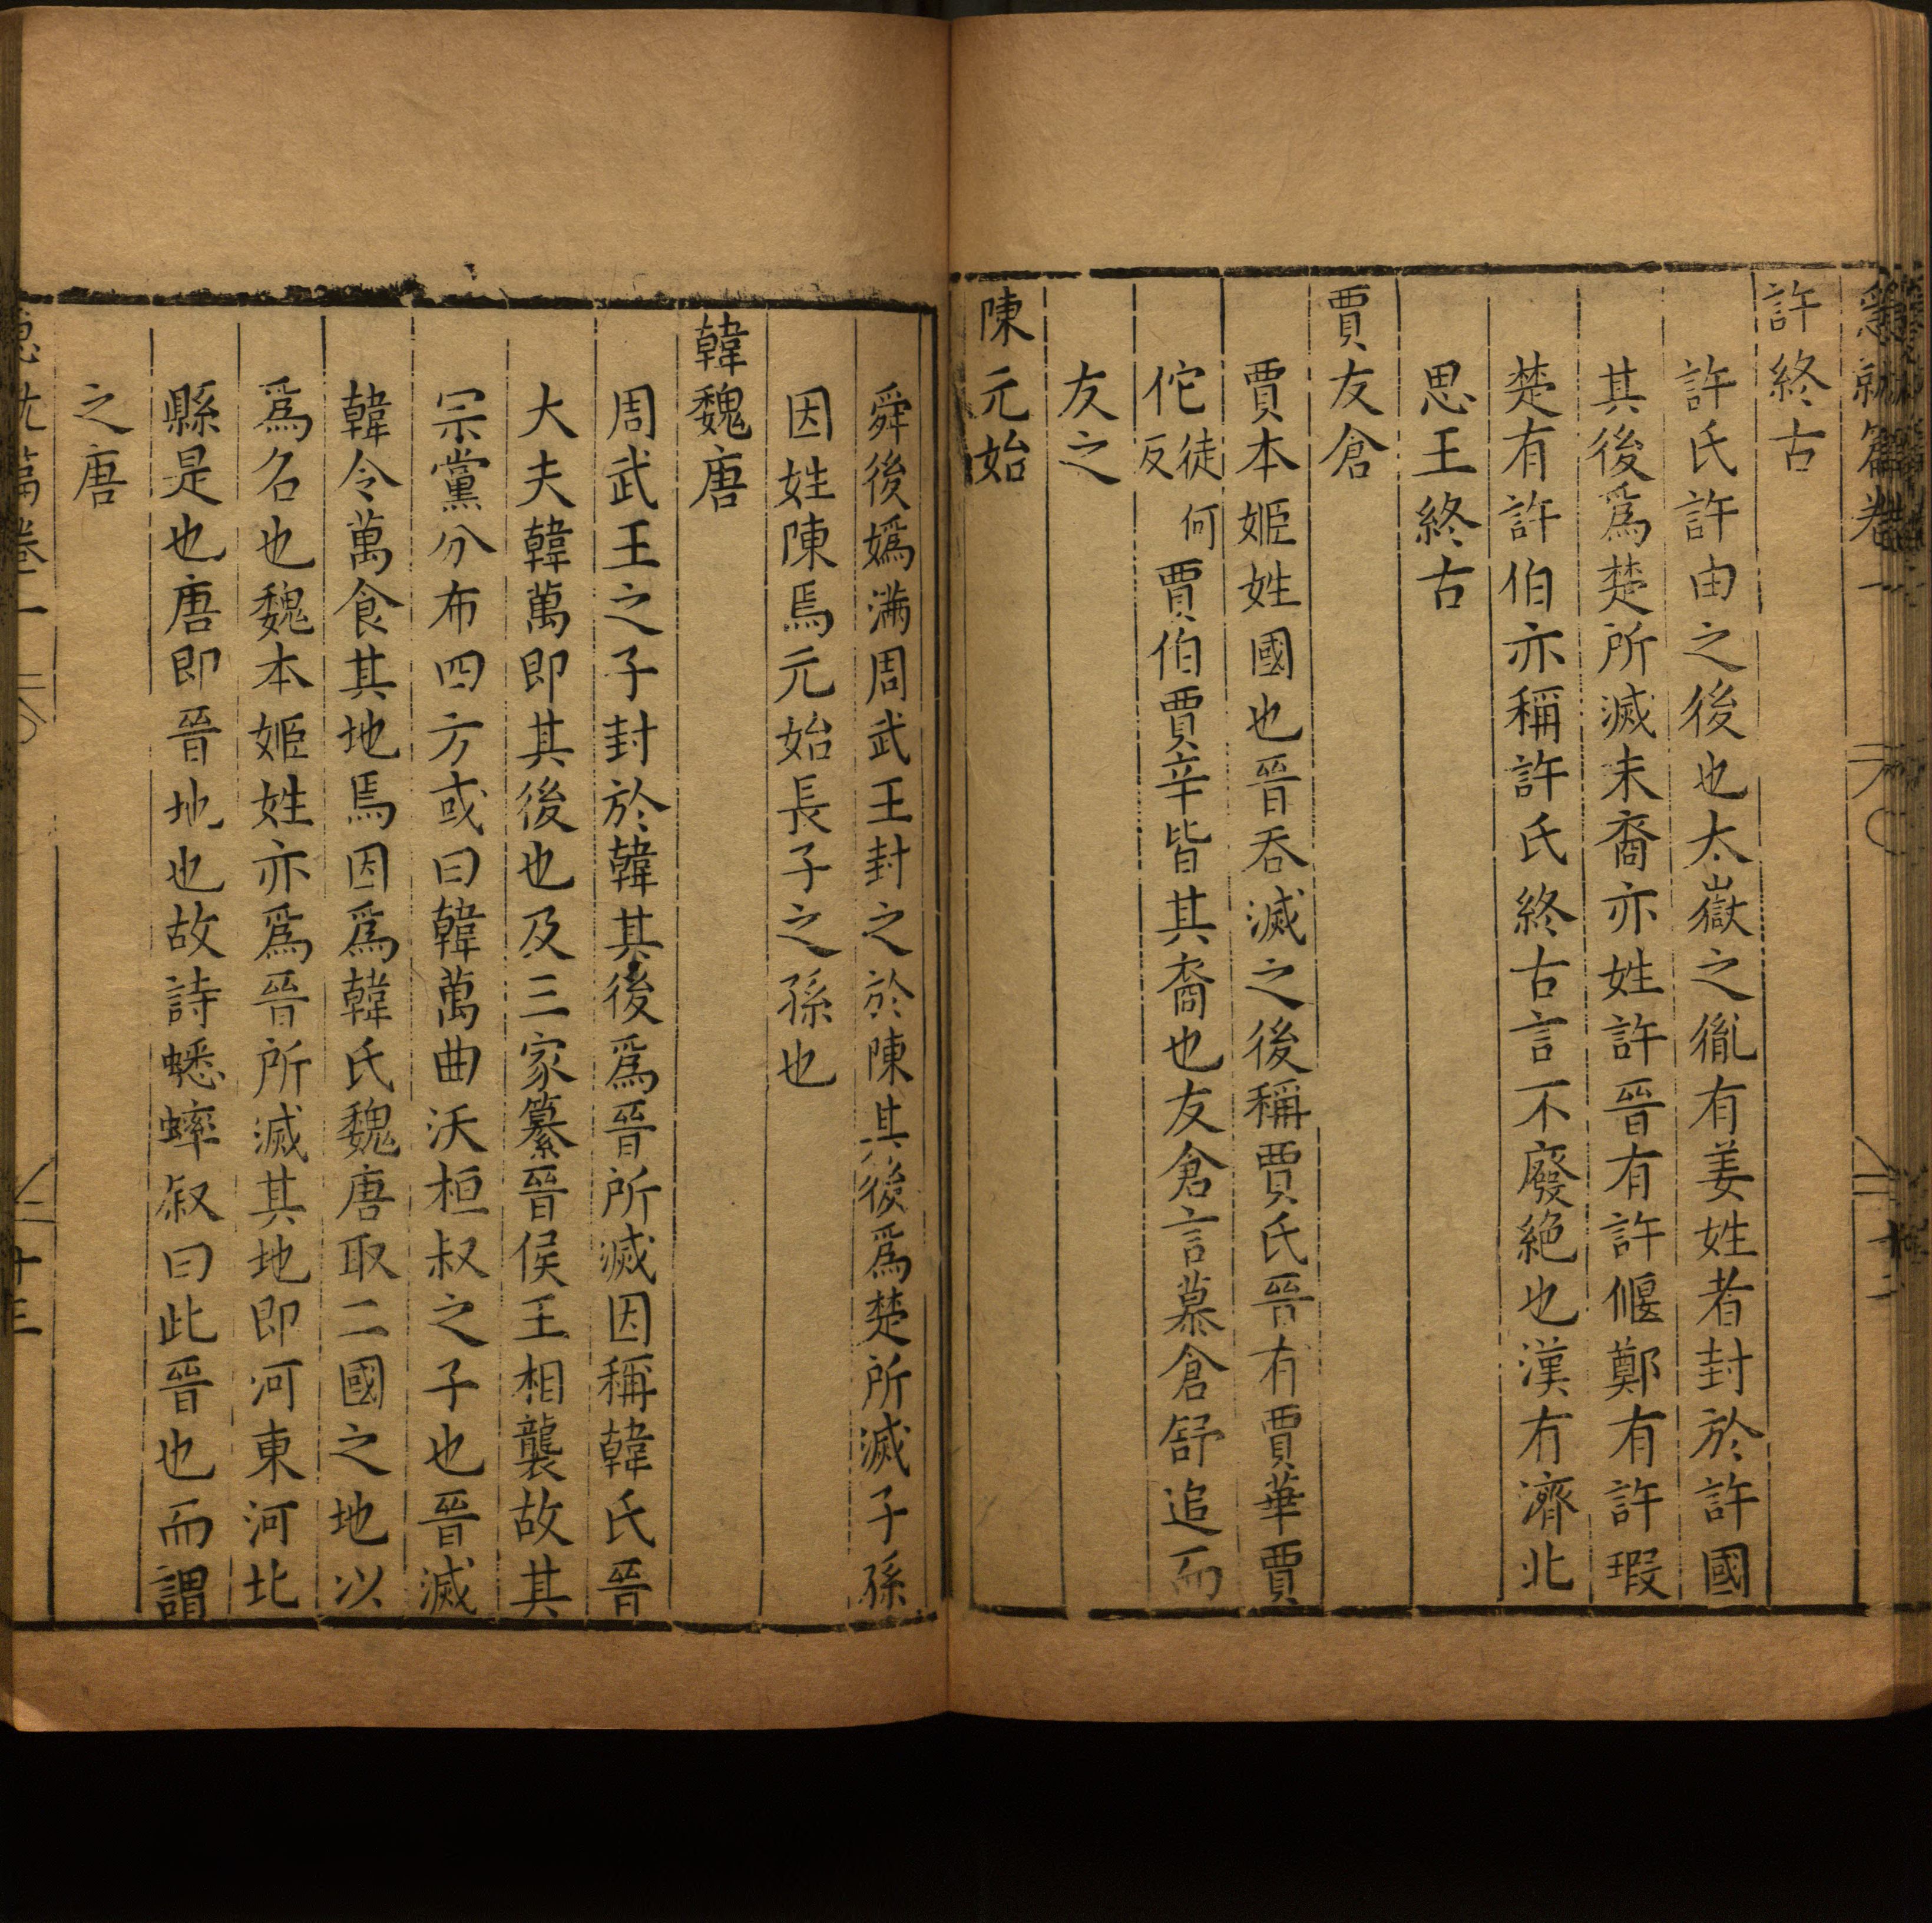 急就篇卷一 十二
許終古
許氏許由之後也太嶽之胤有姜姓者封於許國
其後爲楚所滅末裔亦姓許晉有許偃鄭有許瑕
楚有許伯亦稱許氏終古言不廢絶也漢有濟北
思王終古
賈友倉
賈本姬姓國也晉吞滅之後稱賈氏晉有賈華賈
佗徒何反賈伯賈辛皆其裔也友倉言慕倉舒追而
友之
陳元始
舜後嬀滿周武王封之於陳其後爲楚所滅子孫
因姓陳焉元始長子之孫也
韓魏唐
周武王之子封於韓其後爲晉所滅因稱韓氏晉
大夫韓萬即其後也及三家纂晉侯王相襲故其
宗黨分布四方或曰韓萬曲沃桓叔之子也晉滅
韓令萬食其地焉因爲韓氏魏唐取二國之地以
爲名也魏本姬姓亦爲晉所滅其地即河東河北
縣是也唐即晉地也故詩蟋蟀叙曰此晉也而謂
之唐
急就篇卷一 十三